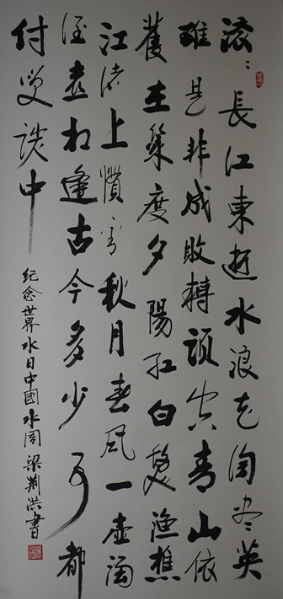 滚〻長江東逝水浪花淘尽英
雄是非成敗轉頭空青山依
舊在幾度夕陽红白髮漁樵
江渚上慣看秋月春風一壺濁
酒喜相逢古今多少事都
付笑談中
纪念世界水日中國水周 梁荆洪書